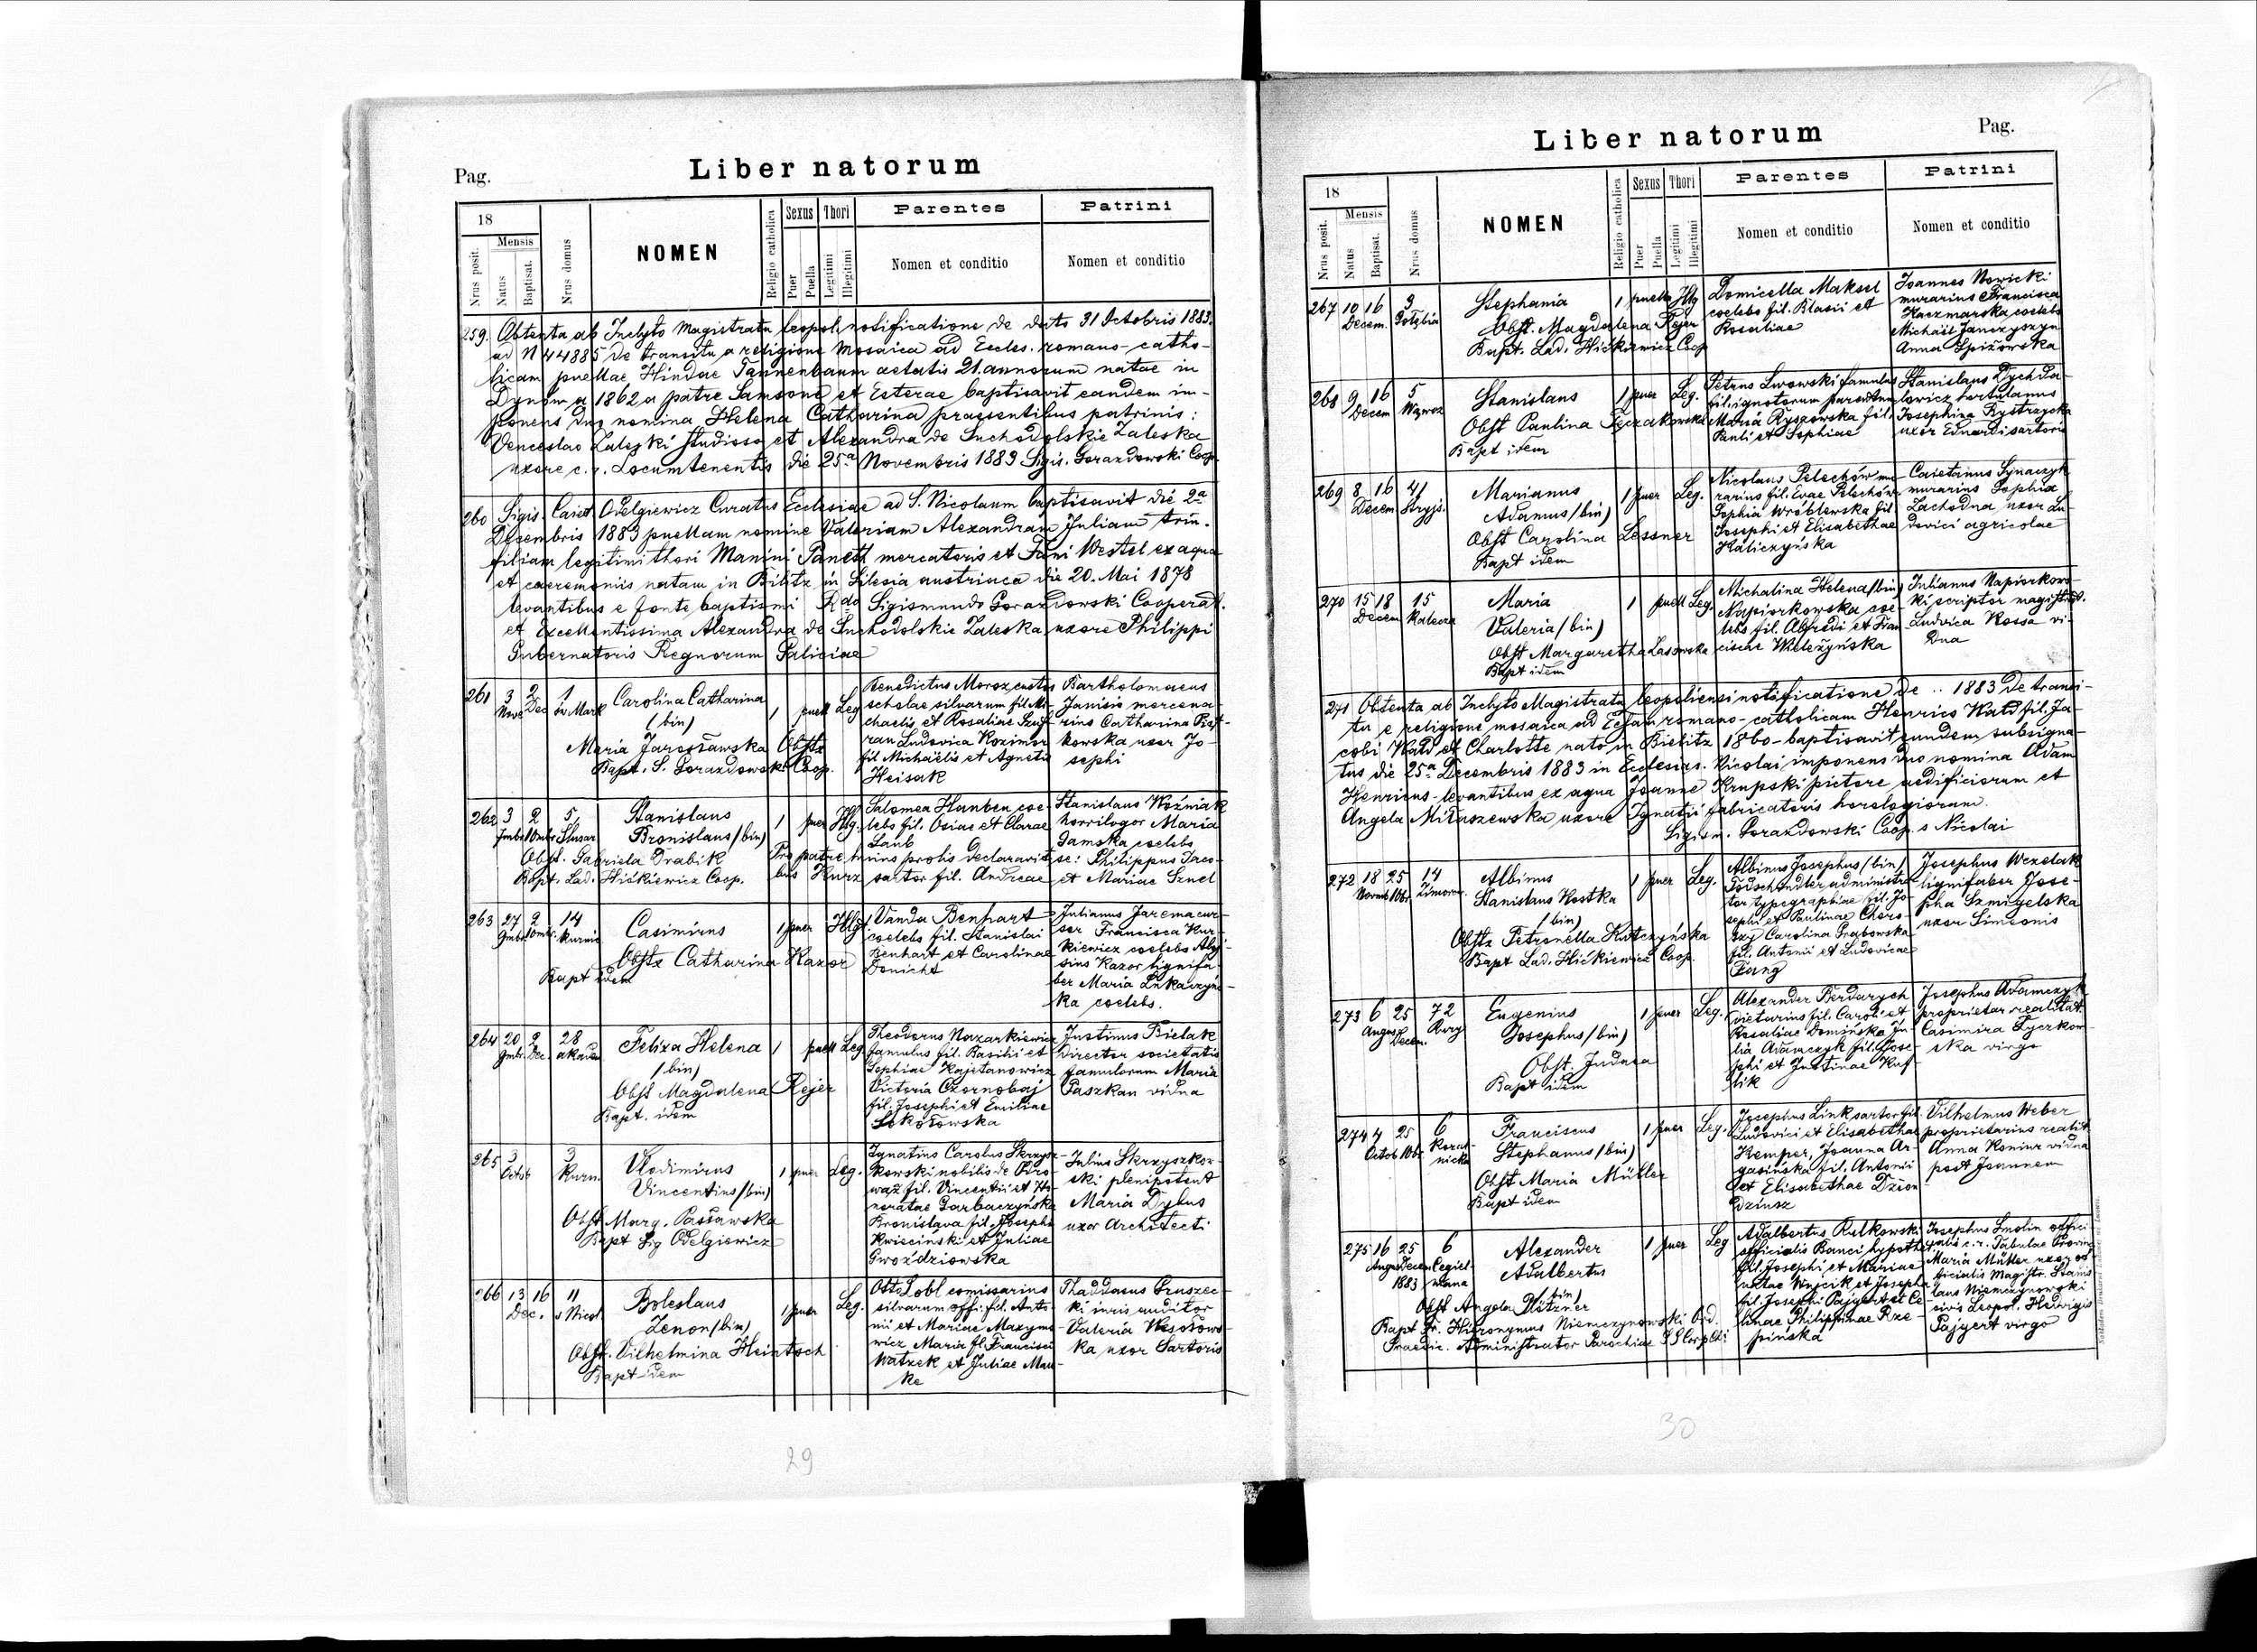 Pag.
Liber natorum
18
Nrus posit.
Mensis
Natus
Baptisat.
Nrus domus
NOMEN
Religio catholica
Sexus
Puer
Puella
Thori
Legitimi
Illegitimi
Parentes
Nomen et conditio
Patrini
Nomen et conditio
259. Obtenta ab Inclyto Magistratu leopol. notificatione de dato 31 Octobris 1883.
ad N 44885 de transitu a religione Mosaica ad Eccles. romano-catho-
licam puellae Hindae Tannenbaum aetatis 21. annorum natae in
Dynów a 1862 a patre Samsone et Esterae baptisavit eandem im-
ponens duo nomina Helena Catharina praesentibus patrinis:
Venceslao Zaleski studioso et Alexandra de Suchodolskie Zaleska
uxore c. r. Locumtenentis die 25a Novembris 1883 Sigis. Gorazdowski Coop.
260 Sigis. Caiet. Odelgiewicz Curatus Ecclesiae ad S. Nicolaum baptisavit die 2a
Decembris 1883 puellam nomine Valeriam Alexandram Juliam trin.
filiam legitimi thori Manini Paneth mercatoris et Fani Westel ex aqua
et caeremoniis natam in Bilitz in Silesia austriaca die 20. Mai 1878
levantibus e fonte baptismi Rdo Sigismundo Gorazdowski Cooperat.
et Excellentissima Alexandra de Suchodolskie Zaleska uxore Philippi
Gubernatoris Regnorum Galiciae
261 3 2 1
Nove Dec św Mark
Carolina Catharina
(bin)
Maria Jarosławska Obstx
Bapt. S. Gorazdowski Coop.
1 puell Leg
Benedictus Moroz custos
scholae silvarum fil Mi-
chaelis et Rosaliae Szuf-
ran Ludovica Kozimor
fil Michaëlis et Agnetis
Heisak
Bartholomaeus
Janisio mercena-
rius Catharina
kowska uxor Jo-
sephi
262 3 2 5
Xmbr Ślusar
Stanislaus
Bronislaus (bin)
Obst. Gabriela Drabik
Bapt. Lad. Hićkiewicz Coop.
1 puer Illg.
Salomea Hauben coe-
lebs fil. Osiae et Clarae
Laub
Stanislaus Woźniak
horrilogor Maria
Damska coelebs
Pro patre huius prolis declaravit se: Philippus Jaco-
bus Kurz sartor fil. Andreae et Mariae Sznel
263 27 2 14
9mbr Kurnic
Casimirus
Obstx Catharina Kazor
Bapt idem
1 puer Illg
Vanda Benhart
coelebs fil. Stanislai
Benhart et Carolinae
Donicht
Julianus Jarema cur-
sor Francisca Kur-
kiewicz coelebs Aloy-
sius Kazor lignifa-
ber Maria Łukaczyńs-
ka coelebs.
264 20 2 28
9mbr. Dec akadem
Felixa Helena
(bin)
Obst Magdalena Rejer
Bapt. idem
1 puell Leg
Theodorus Nazarkiewicz
famulus fil. Basilii et
Sophiae Kajetanowicz
Victoria Czornobaj
fil. Josephi et Emiliae
Sokołowska
Justinus Bielak
director societatis
famulorum Maria
Paszkan vidua
265 3 3
Octob Kurn.
Vlodimirus
Vincentius (bin)
Obst Marg. Passawska
Bapt Sig Odelgiewicz
1 puer Leg.
Ignatius Carolus Skrzysz-
kowski nobilis de Odro-
wąż fil. Vincentii et Ho-
noratae Garbaczyńska
Bronislava fil. Josephi
Kwieciński et Juliae
Gwoździowska
Julius Skrzyszkow-
ski plenipotent
Maria Dybus
uxor Architecti
266 13 16 11
Dec. s Nicol
Boleslaus
Zenon (bin)
Obst. Vilhelmina Heintsch
Bapt idem
1 puer Leg.
Otto Lobl comissarius
silvarum offi. fil. Anto-
nii et Mariae Maxymo-
wicz Maria fil. Francisci
Watzek et Juliae Mau-
ke
Thaddaeus Gruszec-
ki iuris auditor
Valeria Wesołows-
ka uxor Sartoris
29
Pag.
Liber natorum
18
Nrus posit.
Mensis
Natus
Baptisat.
Nrus domus
NOMEN
Religio catholica
Sexus
Puer
Puella
Thori
Legitimi
Illegitimi
Parentes
Nomen et conditio
Patrini
Nomen et conditio
267 10 16 3
Decem. Gołębia
Stephania
Obst. Magdalena Rejer
Bapt. Lad. Hićkiewicz Coop
1 puella Illg
Domicella Maksel
coelebs fil. Blasii et
Rosaliae
Joannes Nowicki
murarius Francisca
Kaczmarska coelebs
Michaël Janczyszyn
Anna Spiżowska
268 9 16 5
Decem Wąwoz
Stanislaus
Obst Paulina Tęczakowska
Bapt idem
1 puer Leg.
Petrus Lwowski famulus
fil. ignotorum parentum
Maria Ryszowska fil.
Pauli et Sophiae
Stanislaus Dychda-
lowicz hortulanus
Josephina Bystrzycka
uxor Eduardi sartoris
269 8 16 41
Decem Stryjs.
Marianus
Adamus (bin)
Obst Carolina Lessner
Bapt idem
1 puer Leg.
Nicolaus Pelechów mu-
rarius fil. Evae Pelechów
Sophia Wróblewska fil
Josephi et Elisabethae
Haliczyńska
Caietanus Synaczyk
murarius Sophia
Zachodna uxor Lu-
dovici agricolae
270 15 18 15
Decem Kalecza
Maria
Valeria (bin)
Obst Margaretha Lasowska
Bapt idem
1 puell Leg.
Michalina Helena (bin)
Napiorkowska coe-
lebs fil. Alfredi et Fran-
ciscae Wieleżyńska
Julianus Napiorkows-
ki scriptor magistrat.
Ludvica Kossa vi-
dua
271 Obtenta ab Inclyto Magistratu leopoliensi notificatione de .. 1883 de transi-
tu e religione mosaica ad Ecclam romano-catholicam Henrico Wald fil. Ja-
cobi Wald et Charlotte nato in Bielitz 1860- baptisavit eundem subsigna-
tus die 25a Decembris 1883 in Ecclesia s. Nicolai imponens duo nomina Adam
Henricus- levantibus ex aqua Joanne Krupski pictore aedificiorum et
Angela Miłaszewska uxore Ignatii fabricatoris horologiorum.
Sigism. Gorazdowski Coop. s Nicolai
272 18 25 14
Novmb Xbr. Zimorow.
Albinus
Stanislaus Kostka
(bin)
Obstx Petronella Kutczyńska
Bapt Lad. Hićkiewicz Coop.
1 puer Leg.
Albinus Josephus (bin)
Todschindler administra-
tor typographiae fil. Jo-
sephi et Paulinae Choro-
szy Carolina Grabowska
fil. Antonii et Ludovicae
Fang
Josephus Wezelak
lignifaber Jose-
pha Szmigelska
uxor Simeonis
273 6 25 72
August Decem.
Eugenius
Josephus (bin)
Obst. Judasa
Bapt idem
1 puer Leg.
Alexander Berdarych
vietarius fil. Caroli et
Rosaliae Domińska Ju-
lia Adamczyk fil. Jose-
phi et Justinae Kuf-
lik
Josephus Adamczyk
proprietar realitat.
Casimira Tyczkow-
ska virgo
274 4 25 6
Octob Xbr. Koral-
nicka
Franciscus
Stephanus (bin)
Obst Maria Müller
Bapt idem
1 puer Leg.
Josephus Link sartor fil.
Ludovici et Elisabethae
Kemper, Joanna Ar-
gasińska fil. Antonii
et Elisabethae Dzion
Dziusz
Vilhelmus Weber
proprietarius realit
Anna Koniur vidua
post Joannem
275 16 25 6
Augus Decem Cegiel-
1883 niana
Alexander
Adalbertus
(bin)
Obst Angela Ditzner
Bapt Fr. Hieronymus Niemczynowski Ord.
Praedic. Administrator Parochiae SS Corp Cti
1 puer Leg
Adalbertus Rutkowski
officialis Banci hypoth
fil. Josephi et Mariae
natae Wujcik et Josepha
fil. Josephi Pajgert et Ce-
linae Philippinae Rze-
pińska
Josephus Smolin offici-
alis c. r. Tabulae Provin
Maria Müller uxor of-
ficialis Magistr. Stanis-
laus Niemczynowski
civis Leopol. Hedwigis
Pajgert virgo
30